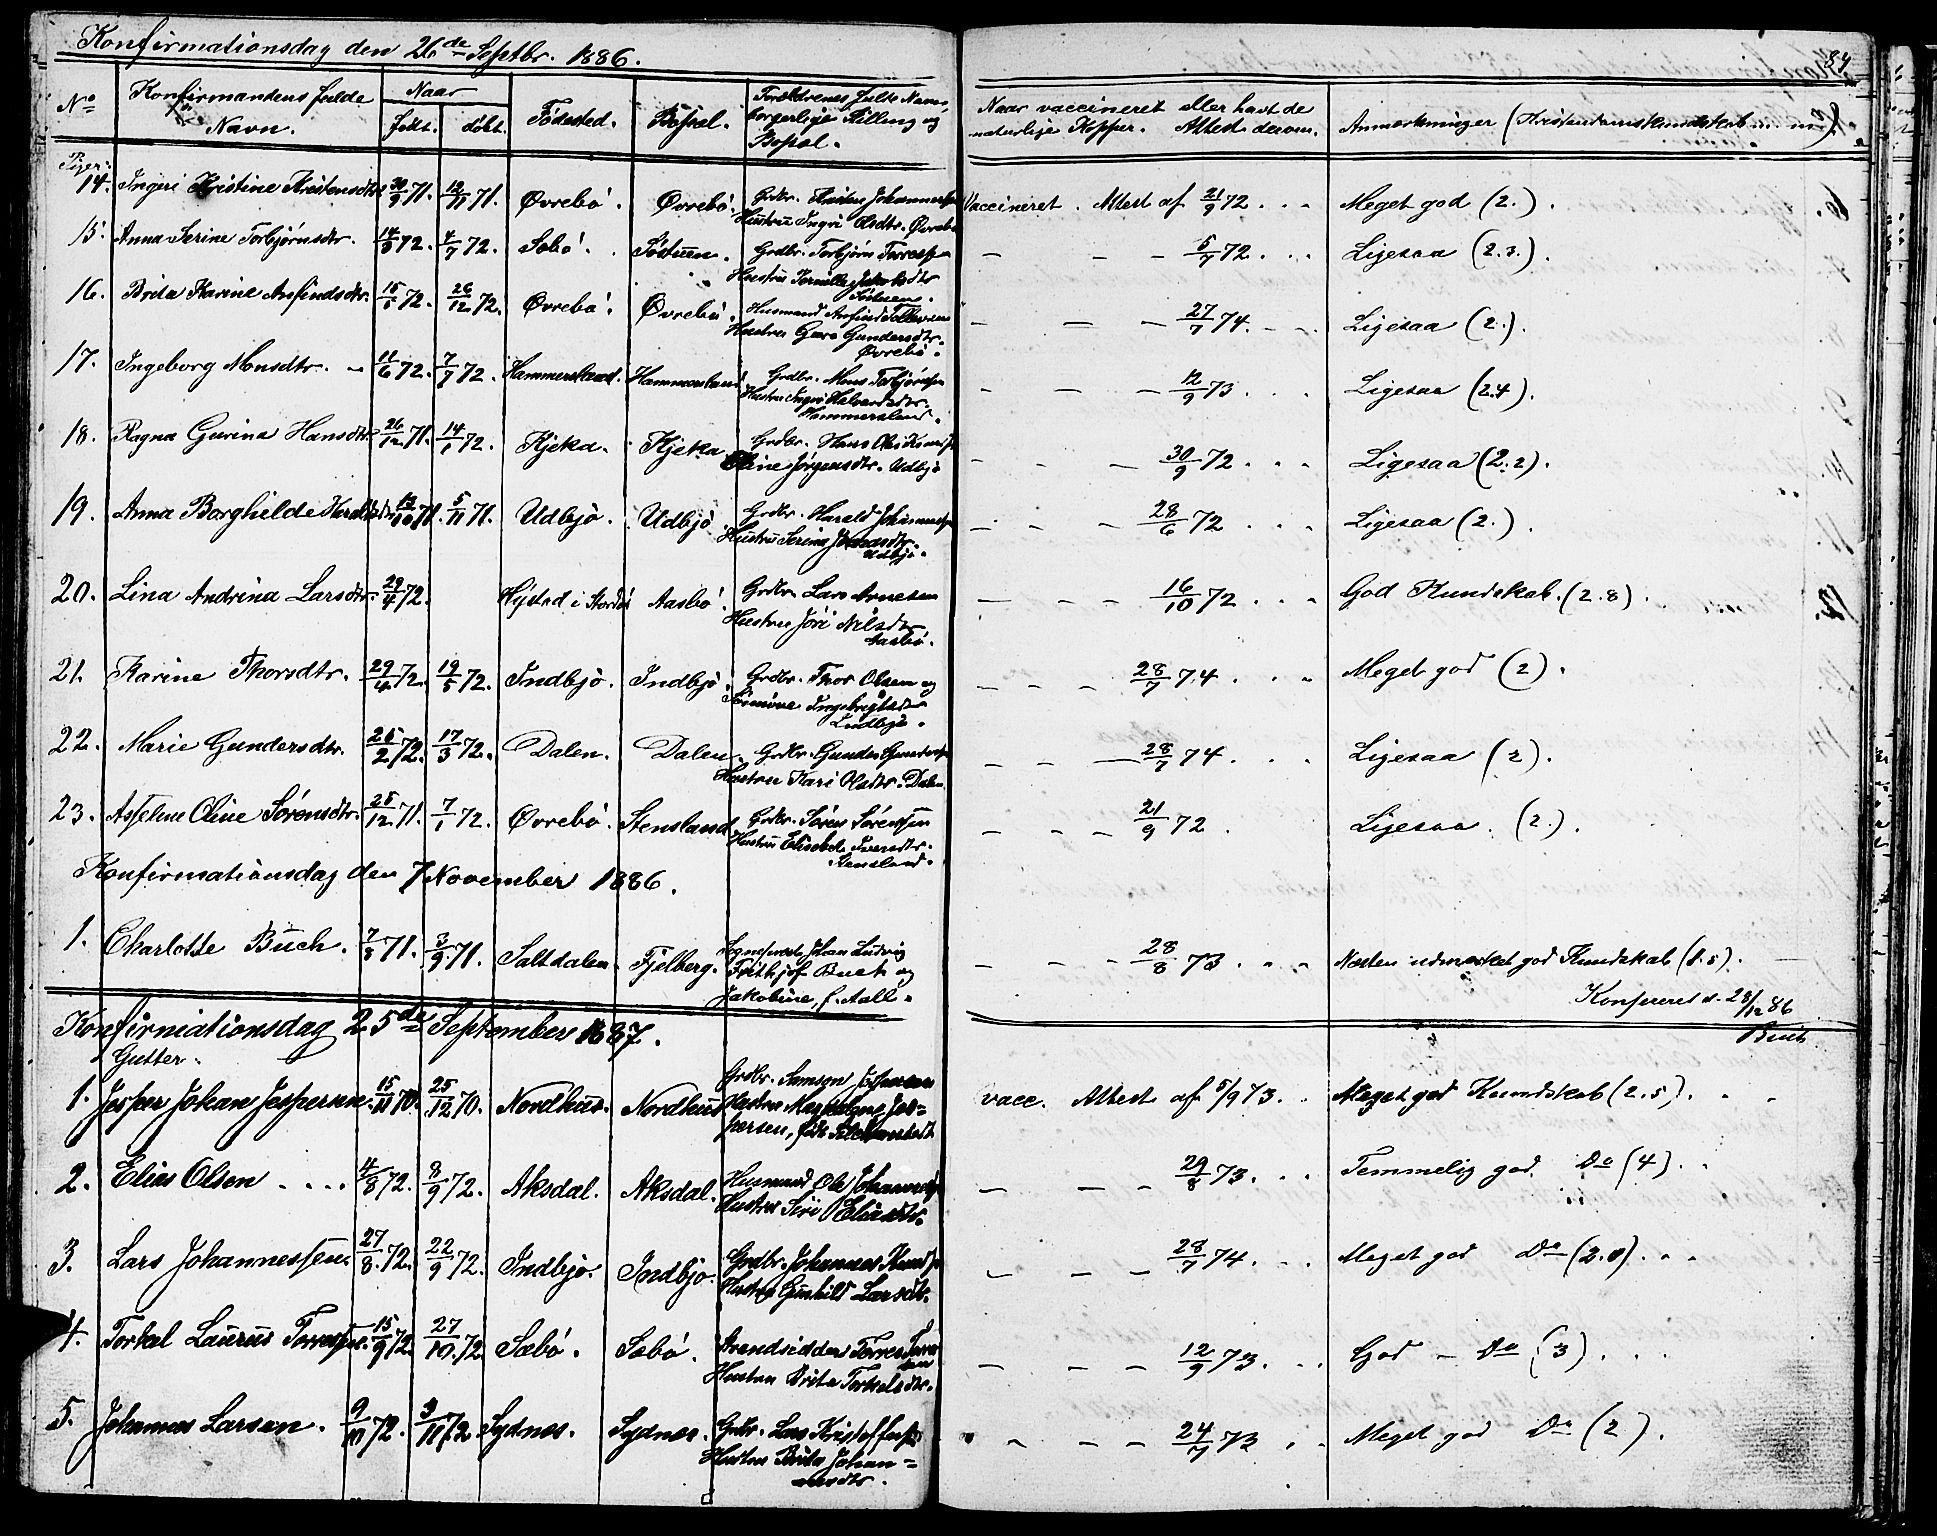 Konfirmationsdag den 26de Septbr. 1886.
No Konfirmandens fulde Navn. Naar født. døbt. Fødested. Bopæl. Forældrenes fulde Navn, borgerlige Stilling og Bopæl.
Naar vaccineret eller havt de naturlige Kopper. Attest derom. Anmærkninger (Kristendomskundskab m. m.)
84
Piger:
14. Ingeri Kristine Kristensdtr. 30/9 71. 12/11 71. Øvrebø. Øvrebø. Grdbr. Kristen Johannessen
Hustru Ingri Olsdtr. Øvrebø
Vaccineret. Attest af 21/9 72. Meget god (2.).
15. Anna Serine Torbjørnsdtr. 14/5 72. 4/7 72. Søbø. Tøstuen. Grdbr. Torbjørn Torressen
Hustru Pernille Jakobsdtr
- - - 5/7 72. Ligesaa (2.3.).
16. Brita Karine Anfindsdtr. 15/5 72. 26/12 72. Øvrebø. Øvrebø. Husmand Anfind Tollevsen
Hustru Guro Gundersdtr.
Øvrebø.
- - - 27/7 74. Ligesaa (2.).
17. Ingeborg Monsdtr. 11/6 72. 7/7 72. Hammersland. Hammersland Grdbr. Mons Torbjørnsen
Hustru Ingri Halvardsdtr.
Hammersland.
- - - 12/9 73. Ligesaa (2.4).
18. Ragna Gurina Hansdtr. 26/12 71. 14/1 72. Kjeka. Kjeka Grdbr. Hans
Oline Jørgensdtr. Udbjø
- - - 30/9 72. Ligesaa (2.2).
19. Anna Borghilde Haraldsdtr. 13/10 71. 5/11 71. Udbjø. Udbjø Grdbr. Harald Johannessen
Hustru Serina
Udbjø.
- - - 28/6 72. Ligesaa (2.).
20. Lina Andrina Larsdtr. 29/4 72. Hystad i Stordø Aasbø. Grdbr. Lars Arnesen
Hustru Jøri Nilsdtr
Aasbø.
- - - 16/10 72. God Kundskab. (2.8).
21. Karine Thorsdtr. 29/4 72. 19/5 72. Indbjø. Indbjø. Grdbr. Thor Olsen og
Ingebrigtsdtr
Indbjø.
- - - 28/7 74. Meget god (2).
22. Marie Gundersdtr. 25/2 72. 17/3 72. Dalen. Dalen. Grdbr. Gunder Gundersen
Hustru Kari Olsdtr. Dalen
- - - 28/7 74. Ligesaa (2).
23. Asseline Oline Sørensdtr. 25/12 71. 7/1 72. Øvrebø. Stensland Grdbr. Søren Sørensen
Hustru Elisabet Iversdtr.
Stensland.
- - - 21/9 72. Ligesaa. (2.).
Konfirmationsdag den 7 November 1886.
1. Charlotte Buch. 7/8 71. 3/9 71. Saltdalen. Fjelberg. Sognepræst Johan Ludvig
Frithjof Buch og
Jakobine, f. Aall.
- - - 28/8 73. Næsten udmærket god Kundskab (1.5).
Konfereret d. 28/12 86
Buch
Konfirmationsdag 25de September 1887.
Gutter.
1. Jesper Johan Jespersen. 15/11 70. 25/12 70. Nordhus. Nordhus Grdbr. Samson Jespersen
Hustru Magdalene Jes=
persen, født
vacc. Attest af 5/9 73. Meget god Kundskab (2.5).
2. Elias Olsen 4/8 72. 8/9 72. Aksdal. Aksdal. Husmand Ole Johannessen
Hustru Siri Eliasdtr.
- - - 29/8 73. Temmelig god Do (4).
3. Lars Johannessen. 27/8 72. 22/9 72. Indbjø. Indbjø. Grdbr. Johannes Knudsen
Hustru Gunhild Larsdtr.
- - - 28/7 74. Meget god Do (2.0).
4. Torkel Laurus Torressen. 15/9 72. 27/10 72. Sæbø. Sæbø. Strandsidder Torres Torres
sen
Hustru Brita Torkelsdtr.
- - - 12/9 73. God - Do (3).
5. Johannes Larsen. 9/10 72. 3/11 72 Sydnes. Sydnes. Grdbr. Lars Kristoffersen
Hustru Brita Johan=
nesdtr.
- - - 24/7 73. Meget god Do (2).